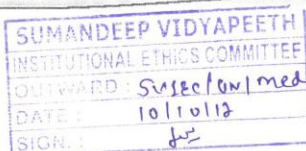 SUMANDEEP VIDYAPEETH
INSTITUTIONAL ETHICS COMMITTEE
OUTWARD : SVIEC/ON/med
DATE : 10/10/12
SIGN. :